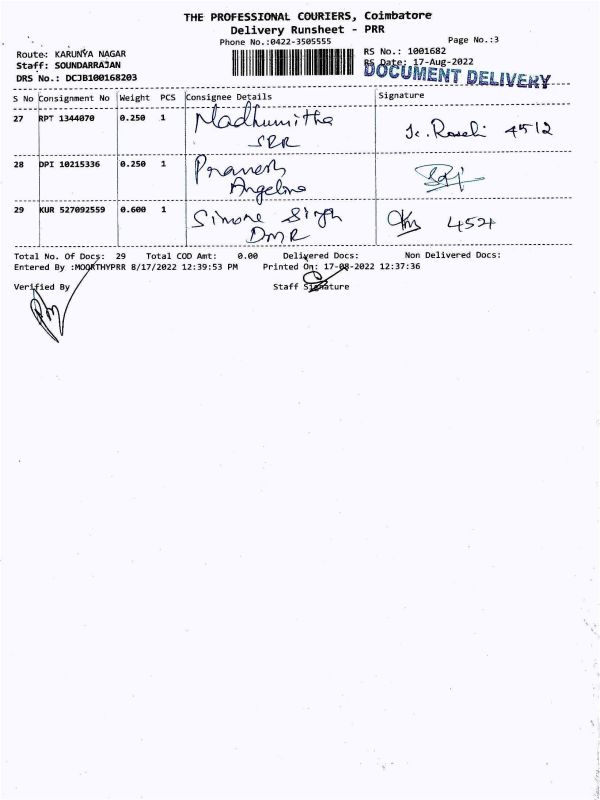 THE PROFESSIONAL COURIERS, Coimbatore
Delivery Runsheet - PRR
Phone No.:0422-3505555
Page No.:3
Route: KARUNYA NAGAR
RS No.: 1001682
Staff: SOUNDARRAJAN
RS Date: 17-Aug-2022
DRS No.: DCJB100168203
DOCUMENT DELIVERY
S No Consignment No Weight PCS Consignee Details Signature
27 RPT 1344070 0.250 1 Madhumitha 4512
SRR
28 DPI 10215336 0.250 1 Pranesh
Angeline
29 KUR 527092559 0.600 1 Simone Singh 4524
DMR
Total No. Of Docs: 29 Total COD Amt: 0.00 Delivered Docs: Non Delivered Docs:
Entered By :MOORTHYPRR 8/17/2022 12:39:53 PM Printed On: 17-08-2022 12:37:36
Verified By Staff Signature